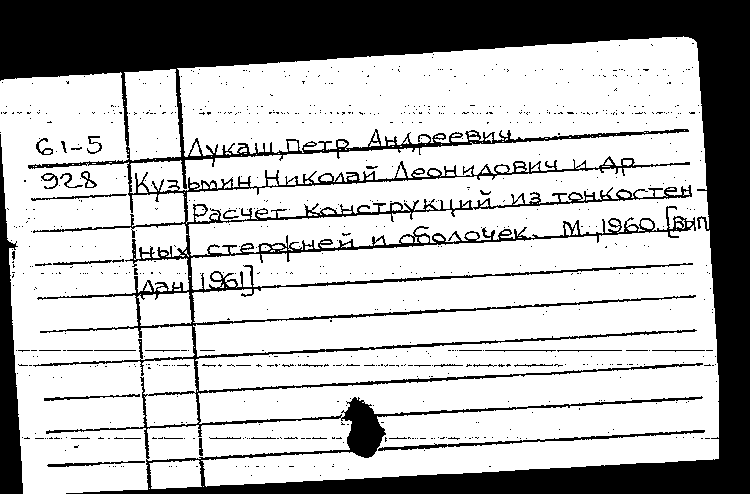 61-5 Лукаш, Петр Андреевич.
928 Кузьмин, Николай Леонидович и др
Расчет конструкций из тонкостен-
ных стержней и оболочек. М., 1960. [Вып
дан 1961].